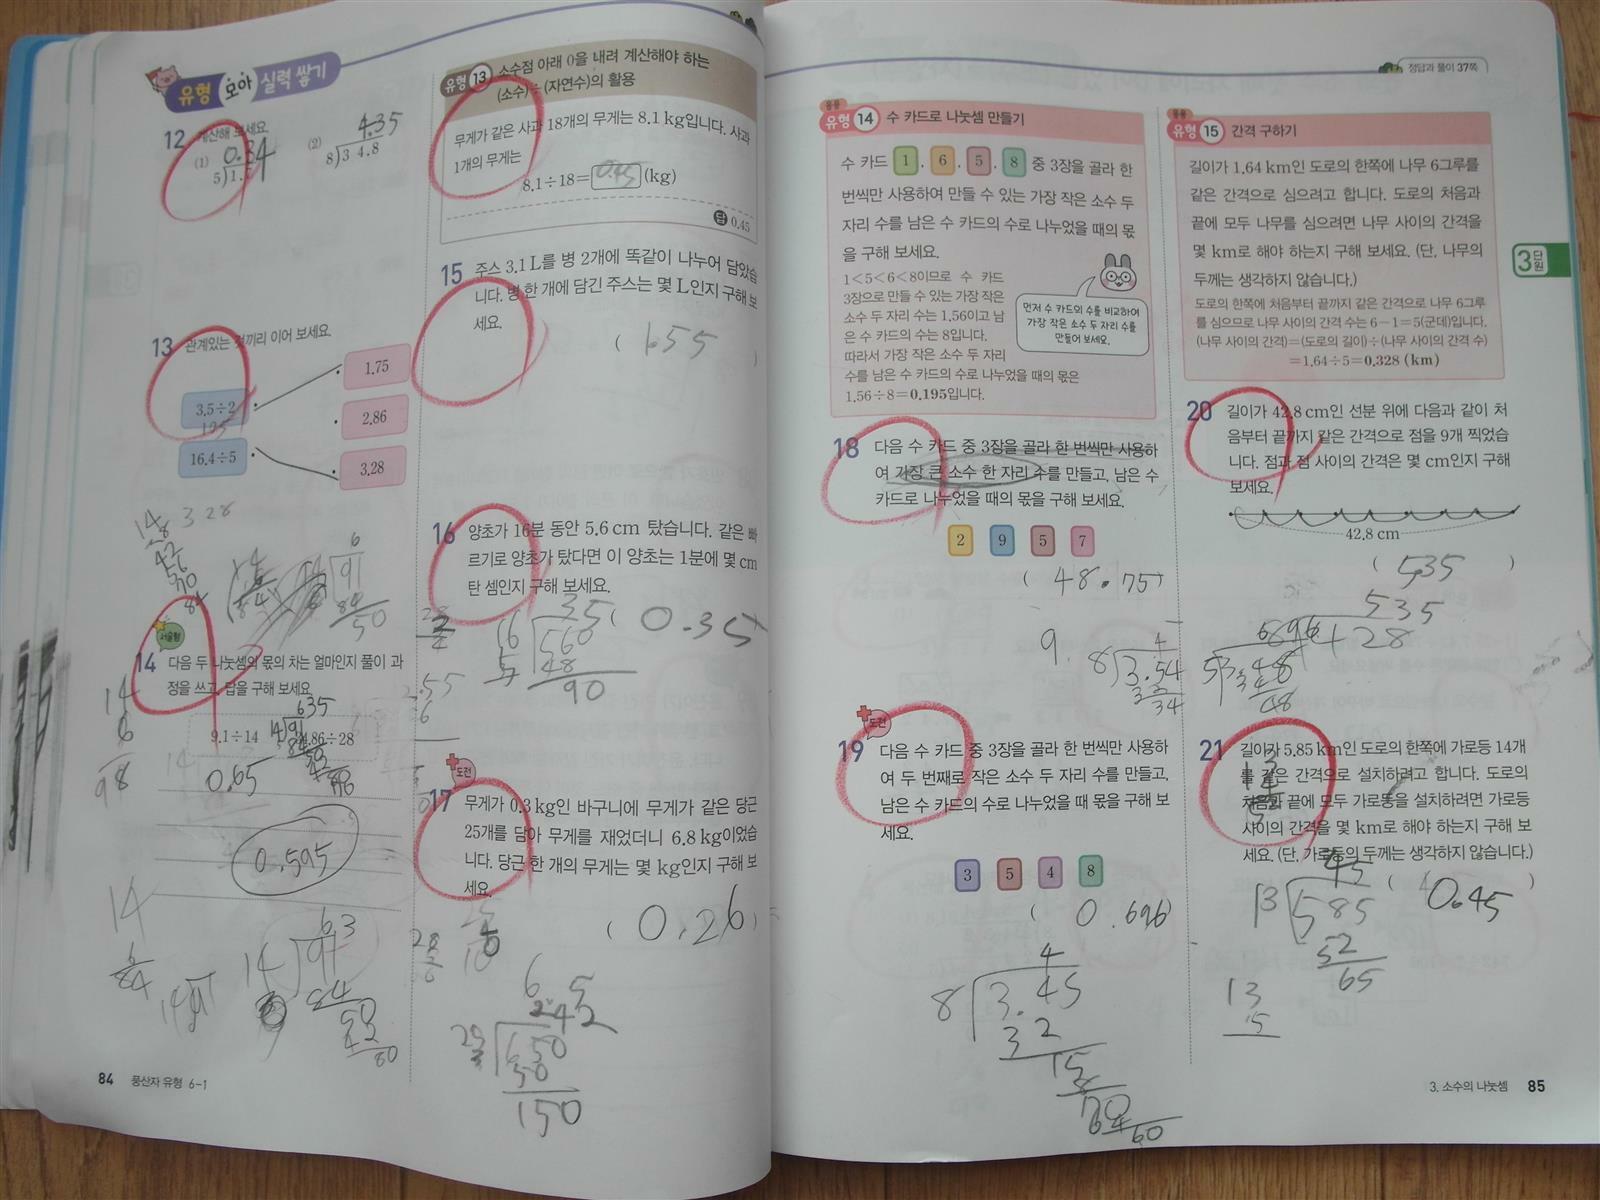 유형 모아 실력 쌓기
12 계산해 보세요.
(1) 0.34
5)1.7
(2) 4.35
8)3 4.8
13 관계있는 것끼리 이어 보세요.
3.5÷2
16.4÷5
1.75
2.86
3.28
서술형
14 다음 두 나눗셈의 몫의 차는 얼마인지 풀이 과
정을 쓰고, 답을 구해 보세요.
9.1÷14
0.65
0.595
84 풍산자 유형 6-1
유형 13 소수점 아래 0을 내려 계산해야 하는
(소수)÷(자연수)의 활용
무게가 같은 사과 18개의 무게는 8.1 kg입니다. 사과
1개의 무게는
8.1÷18= 0.45 (kg)
답 0.45
15 주스 3.1 L를 병 2개에 똑같이 나누어 담았습
니다. 병 한 개에 담긴 주스는 몇 L인지 구해 보
세요.
16 양초가 16분 동안 5.6 cm 탔습니다. 같은 빠
르기로 양초가 탔다면 이 양초는 1분에 몇 cm
탄 셈인지 구해 보세요.
( 0.35 )
도전
17 무게가 0.3 kg인 바구니에 무게가 같은 당근
25개를 담아 무게를 재었더니 6.8 kg이었습
니다. 당근 한 개의 무게는 몇 kg인지 구해 보
세요.
( 0.26 )
정답과 풀이 37쪽
유형 14 수 카드로 나눗셈 만들기
수 카드 1, 6, 5, 8 중 3장을 골라 한
번씩만 사용하여 만들 수 있는 가장 작은 소수 두
자리 수를 남은 수 카드의 수로 나누었을 때의 몫
을 구해 보세요.
1<5<6<8이므로 수 카드
3장으로 만들 수 있는 가장 작은
소수 두 자리 수는 1.56이고 남
은 수 카드의 수는 8입니다.
따라서 가장 작은 소수 두 자리
수를 남은 수 카드의 수로 나누었을 때의 몫은
1.56÷8=0.195입니다.
먼저 수 카드의 수를 비교하여
가장 작은 소수 두 자리 수를
만들어 보세요.
18 다음 수 카드 중 3장을 골라 한 번씩만 사용하
여 가장 큰 소수 한 자리 수를 만들고, 남은 수
카드로 나누었을 때의 몫을 구해 보세요.
2 9 5 7
( 48.75 )
도전
19 다음 수 카드 중 3장을 골라 한 번씩만 사용하
여 두 번째로 작은 소수 두 자리 수를 만들고,
남은 수 카드의 수로 나누었을 때 몫을 구해 보
세요.
3 5 4 8
유형 15 간격 구하기
길이가 1.64 km인 도로의 한쪽에 나무 6그루를
같은 간격으로 심으려고 합니다. 도로의 처음과
끝에 모두 나무를 심으려면 나무 사이의 간격을
몇 km로 해야 하는지 구해 보세요. (단, 나무의
두께는 생각하지 않습니다.)
도로의 한쪽에 처음부터 끝까지 같은 간격으로 나무 6그루
를 심으므로 나무 사이의 간격 수는 6-1=5(군데)입니다.
(나무 사이의 간격)=(도로의 길이)÷(나무 사이의 간격 수)
=1.64÷5=0.328 (km)
3단원
20 길이가 42.8 cm인 선분 위에 다음과 같이 처
음부터 끝까지 같은 간격으로 점을 9개 찍었습
니다. 점과 점 사이의 간격은 몇 cm인지 구해
보세요.
42.8 cm
21 길이가 5.85 km인 도로의 한쪽에 가로등 14개
를 같은 간격으로 설치하려고 합니다. 도로의
처음과 끝에 모두 가로등을 설치하려면 가로등
사이의 간격을 몇 km로 해야 하는지 구해 보
세요. (단, 가로등의 두께는 생각하지 않습니다.)
( 0.45 )
3. 소수의 나눗셈 85